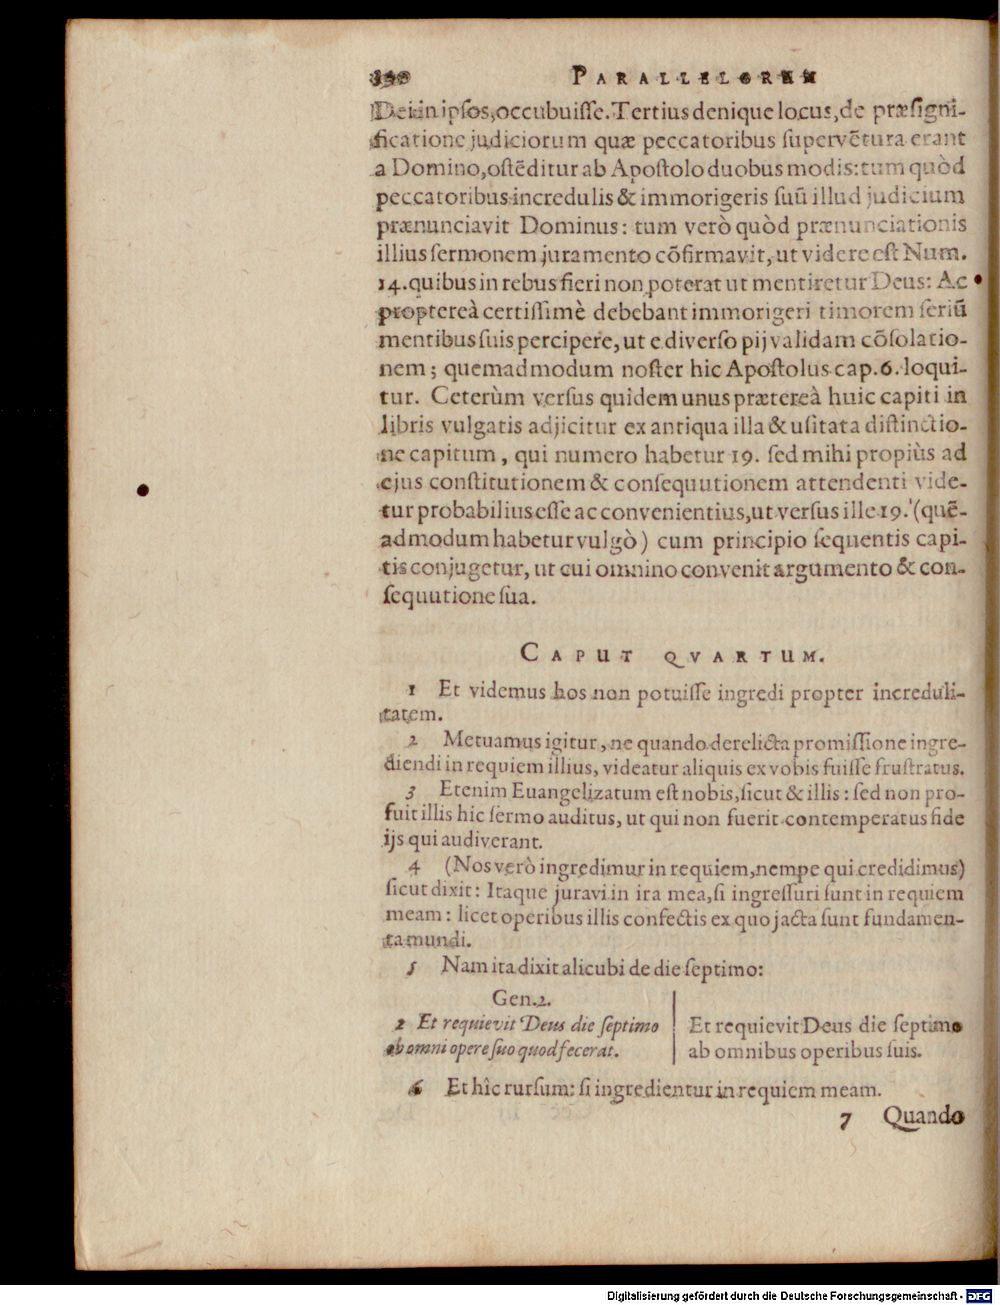 PARALLELORUM
Dei in ipsos, occubuisse. Tertius denique locus, de præsigni-
ficatione judiciorum quæ peccatoribus supervẽtura erant
a Domino, ostẽditur ab Apostolo duobus modis: tum quòd
peccatoribus incredulis & immorigeris suũ illud judicium
prænunciavit Dominus: tum verò quòd prænunciationis
illius sermonem juramento cõfirmavit, ut videre est Num.
14. quibus in rebus fieri non poterat ut mentiretur Deus: Ac
proptereà certissimè debebant immorigeri timorem seriũ
mentibus suis percipere, ut e diverso pij validam cõsolatio-
nem; quemadmodum noster hic Apostolus cap. 6. loqui-
tur. Ceterùm versus quidem unus prætereà huic capiti in
libris vulgatis adjicitur ex antiqua illa & usitata distinctio-
ne capitum, qui numero habetur 19. sed mihi propiùs ad
ejus constitutionem & consequutionem attendenti vide-
tur probabilius esse ac convenientius, ut versus ille 19. (quẽ-
admodum habetur vulgò) cum principio sequentis capi-
tis conjugetur, ut cui omnino convenit argumento & con-
sequutione sua.
CAPUT QVARTUM.
1 Et videmus hos non potuisse ingredi propter increduli-
tatem.
2 Metuamus igitur, ne quando derelicta promissione ingre-
diendi in requiem illius, videatur aliquis ex vobis fuisse frustratus.
3 Etenim Euangelizatum est nobis, sicut & illis: sed non pro-
fuit illis hic sermo auditus, ut qui non fuerit contemperatus fide
ijs qui audiverant.
4 (Nos verò ingredimur in requiem, nempe qui credidimus)
sicut dixit: Itaque juravi in ira mea, si ingressuri sunt in requiem
meam: licet operibus illis confectis ex quo jacta sunt fundamen-
ta mundi.
5 Nam ita dixit alicubi de die septimo:
Gen. 2.
2 Et requievit Deus die septimo
ab omni opere suo quod fecerat.
Et requievit Deus die septimo
ab omnibus operibus suis.
6 Et hîc rursum: si ingredientur in requiem meam.
7 Quando
Digitalisierung gefördert durch die Deutsche Forschungsgemeinschaft - DFG